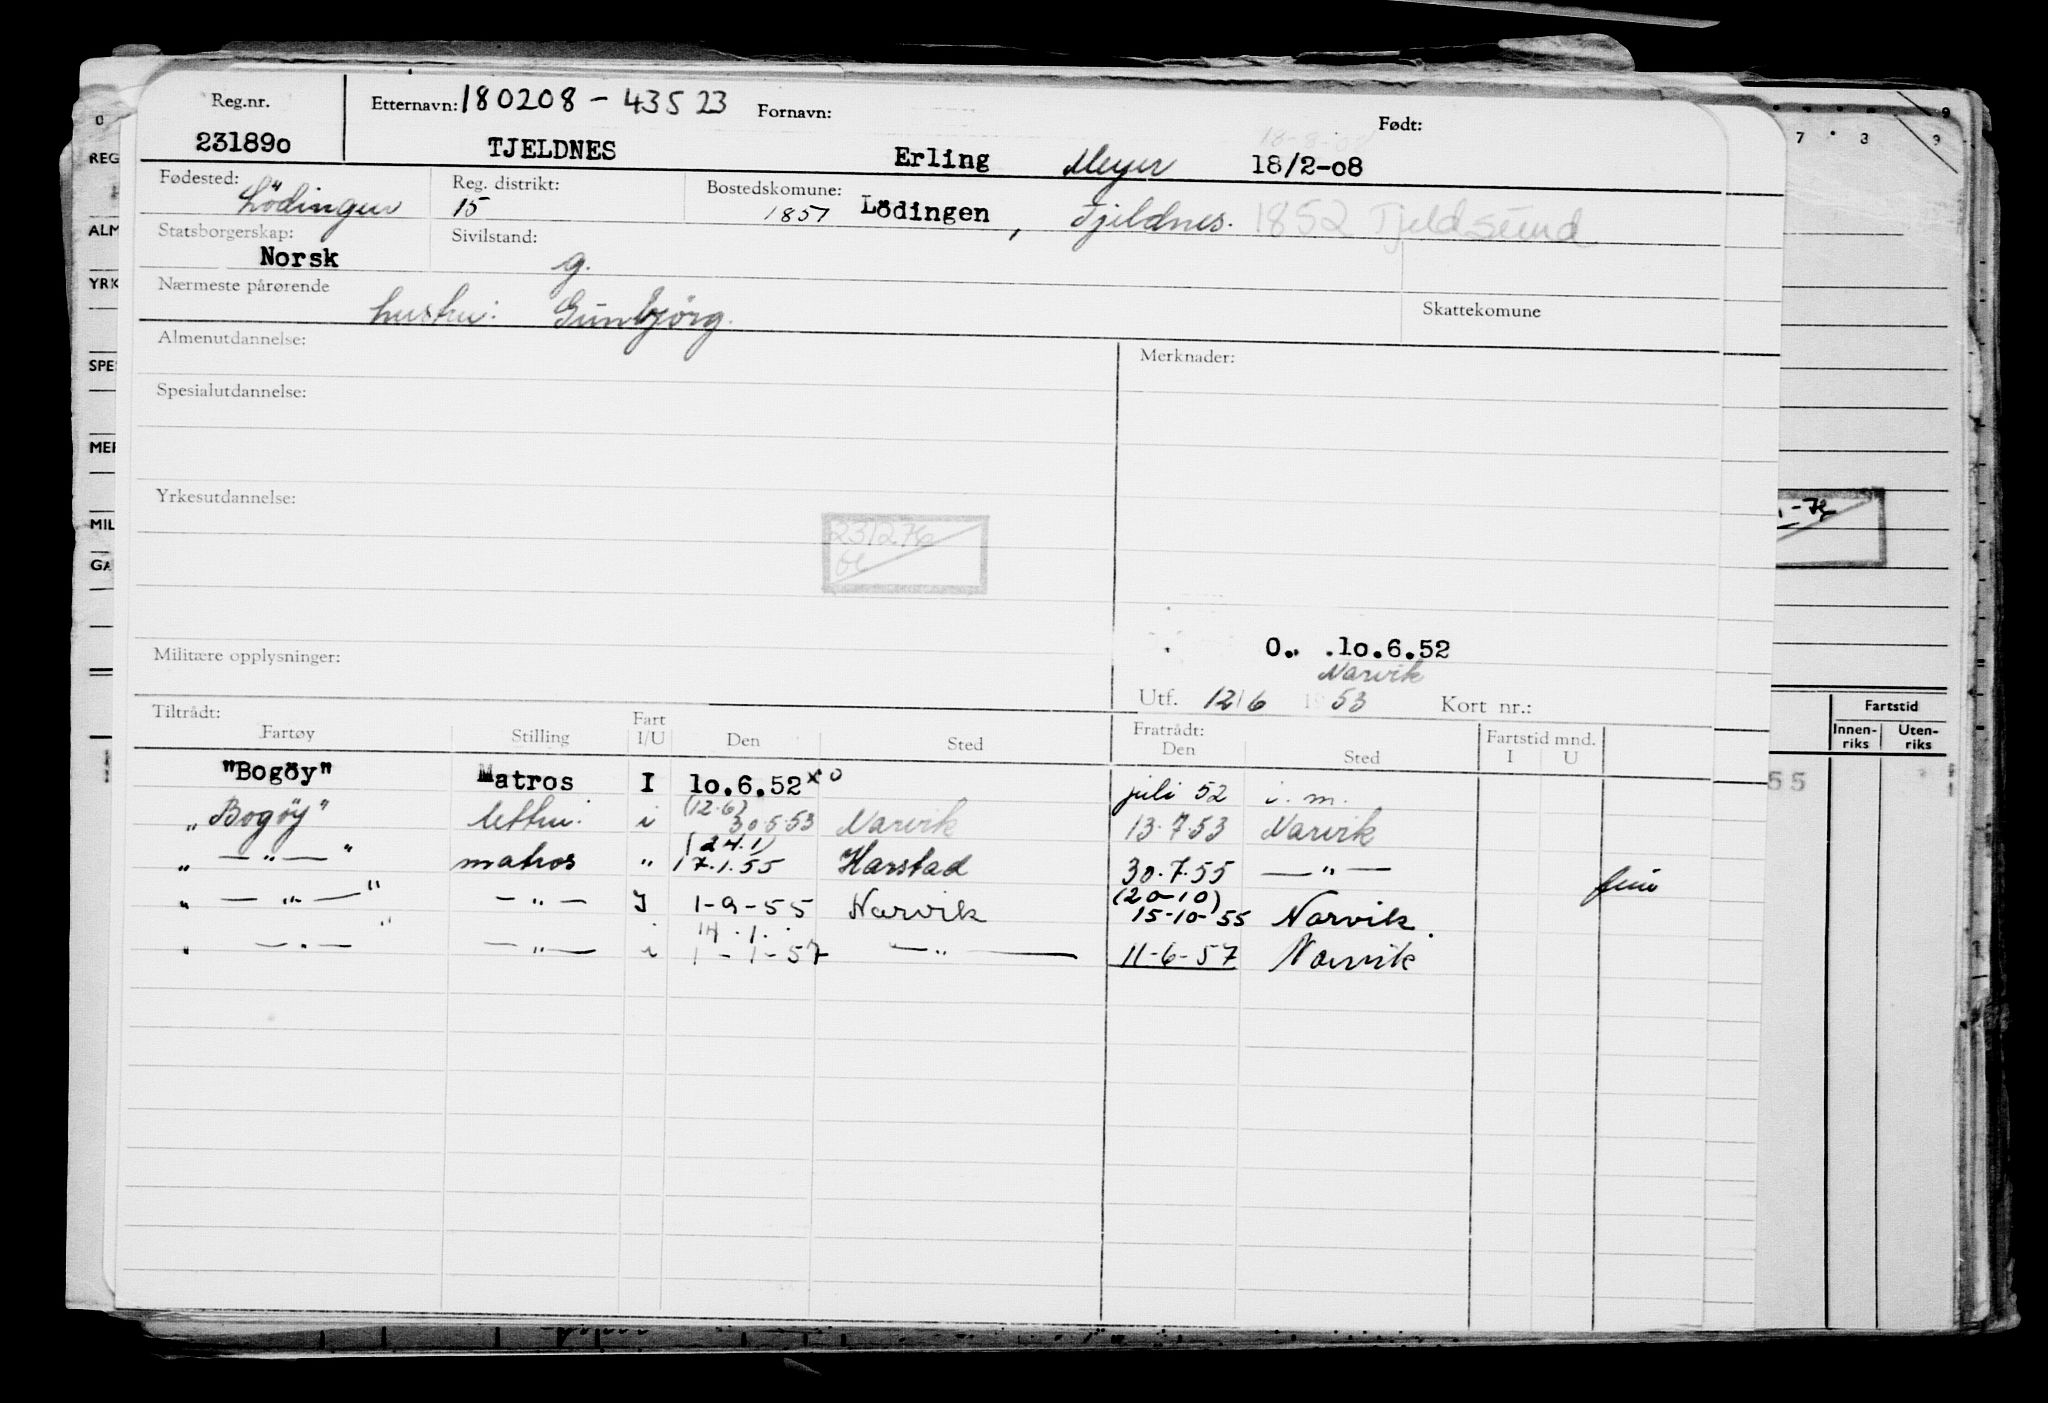 Reg.nr. Etternavn: 180208-43523 Fornavn: Født:
231890 TJELDNES Erling Meyer 18/2-08
Fødested: Reg. distrikt: Bostedskomune:
Lödingen 15 1851 Lödingen, Tjeldnes. 1852 Tjeldsund
Statsborgerskap: Sivilstand:
Norsk g.
Nærmeste pårørende Skattekomune
hustru: Gunbjörg.
Almenutdannelse: Merknader:
Spesialutdannelse:
Yrkesutdannelse:
Militære opplysninger: O.. .lo.6.52
Narvik
Utf. 12/6 1953 Kort nr.:
Tiltrådt: Fart Fratrådt: Fartstid mnd.
Fartøy Stilling I/U Den Sted Den Sted I U
"Bogöy" Matros I lo.6.52 x o juli 52 i. m.
"Bogöy" lettm. i (12.6) 30.5.53 Narvik 13.7.53 Narvik
" — " — " matros " (24.1) 17.1.55 Harstad 30.7.55 — " —
" — " — " — " — I 1-9-55 Narvik (20-10) 15-10-55 Narvik.
" — " — " — " — i 14.1. 1-1-57 — " — 11-6-57 Narvik
REG
ALM
YRK
SPE
MER
MIL
GA
7 3 9
Fartstid
Innen-riks Uten-riks
55